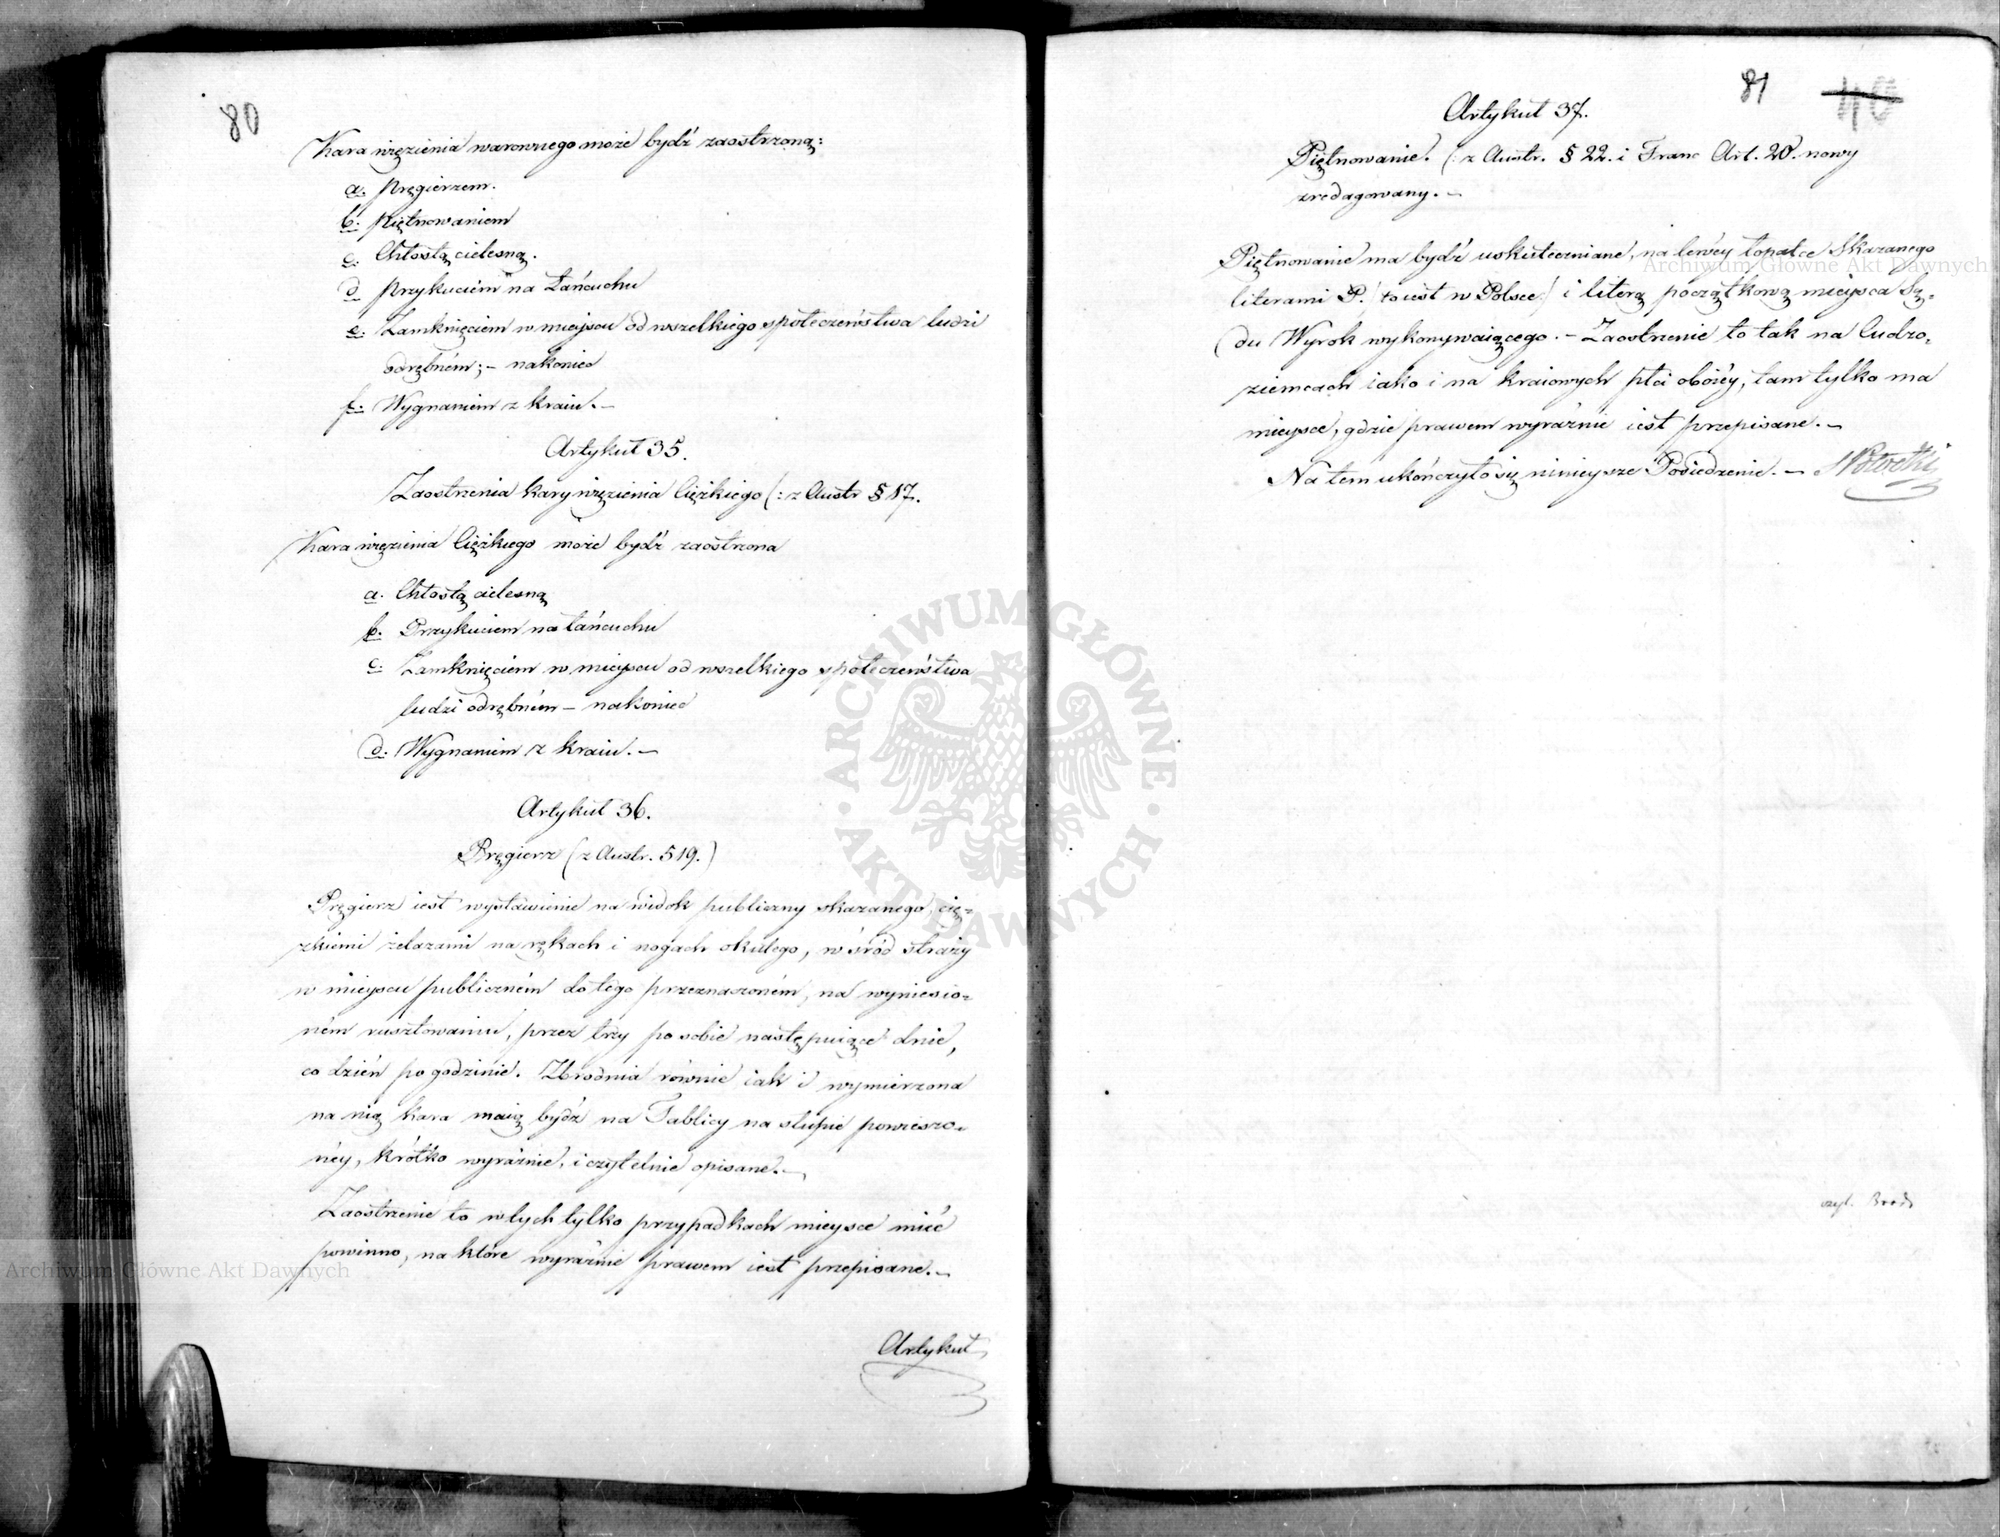 80
Kara więzienia warownego może bydź zaostrzoną:
a. Pręgierzem.
b. Piętnowaniem
c. Chłostą cielesną.
d. przykuciem na Łańcuchu
e. Zamknięciem w mieyscu od wszelkiego społeczeństwa ludzi
odrębném; – nakoniec
f. Wygnaniem z kraiu. –
Artykuł 35.
Zaostrzenia kary więzienia Ciężkiego (: z Austr § 17.
Kara więzienia Ciężkiego może bydź zaostrzona
a. Chłostą cielesną
b. Przykuciem na łańcuchu
c. Zamknięciem w mieyscu od wszelkiego społeczeństwa
ludzi odrębném – nakoniec
d. Wygnaniem z kraiu. –
Artykuł 36.
Pręgierz (z Austr. § 19.)
Pręgierz iest wystawienie na widok publiczny skazanego, cię-
żkiemi żelazami na rękach i nogach okutego, wśród straży
w mieyscu publiczném do tego przeznaczoném, na wyniesio-
ném rusztowaniu, przez trzy po sobie następuiące dnie,
co dzień po godzinie. Zbrodnia równie iak i wymierzona
na nią kara maią bydź na Tablicy na słupie powieszo-
néy, krótko wyraźnie, i czytelnie opisane. –
Zaostrzenie to w tych tylko przypadkach mieysce mieć
powinno, na które wyraźnie prawem iest przepisane. –
Artykuł
81 40
Artykuł 37.
Piętnowanie. (: z Austr. § 22. i Franc Art. 20. nowy
zredagowany. –
Piętnowanie ma bydź uskuteczniane, na lewéy łopatce Skazanego
literami P. / to iest w Polsce / i literą początkową mieysca Są-
du Wyrok wykonywaiącego. – Zaostrzenie to tak na Cudzo-
ziemcach iako i na kraiowych płci obóiéy, tam tylko ma
mieysce, gdzie prawem wyraźnie iest przepisane. –
Na tem ukończyło się ninieysze Posiedzenie. –
Archiwum Główne Akt Dawnych
Archiwum Główne Akt Dawnych
ARCHIWUM GŁÓWNE AKT DAWNYCH